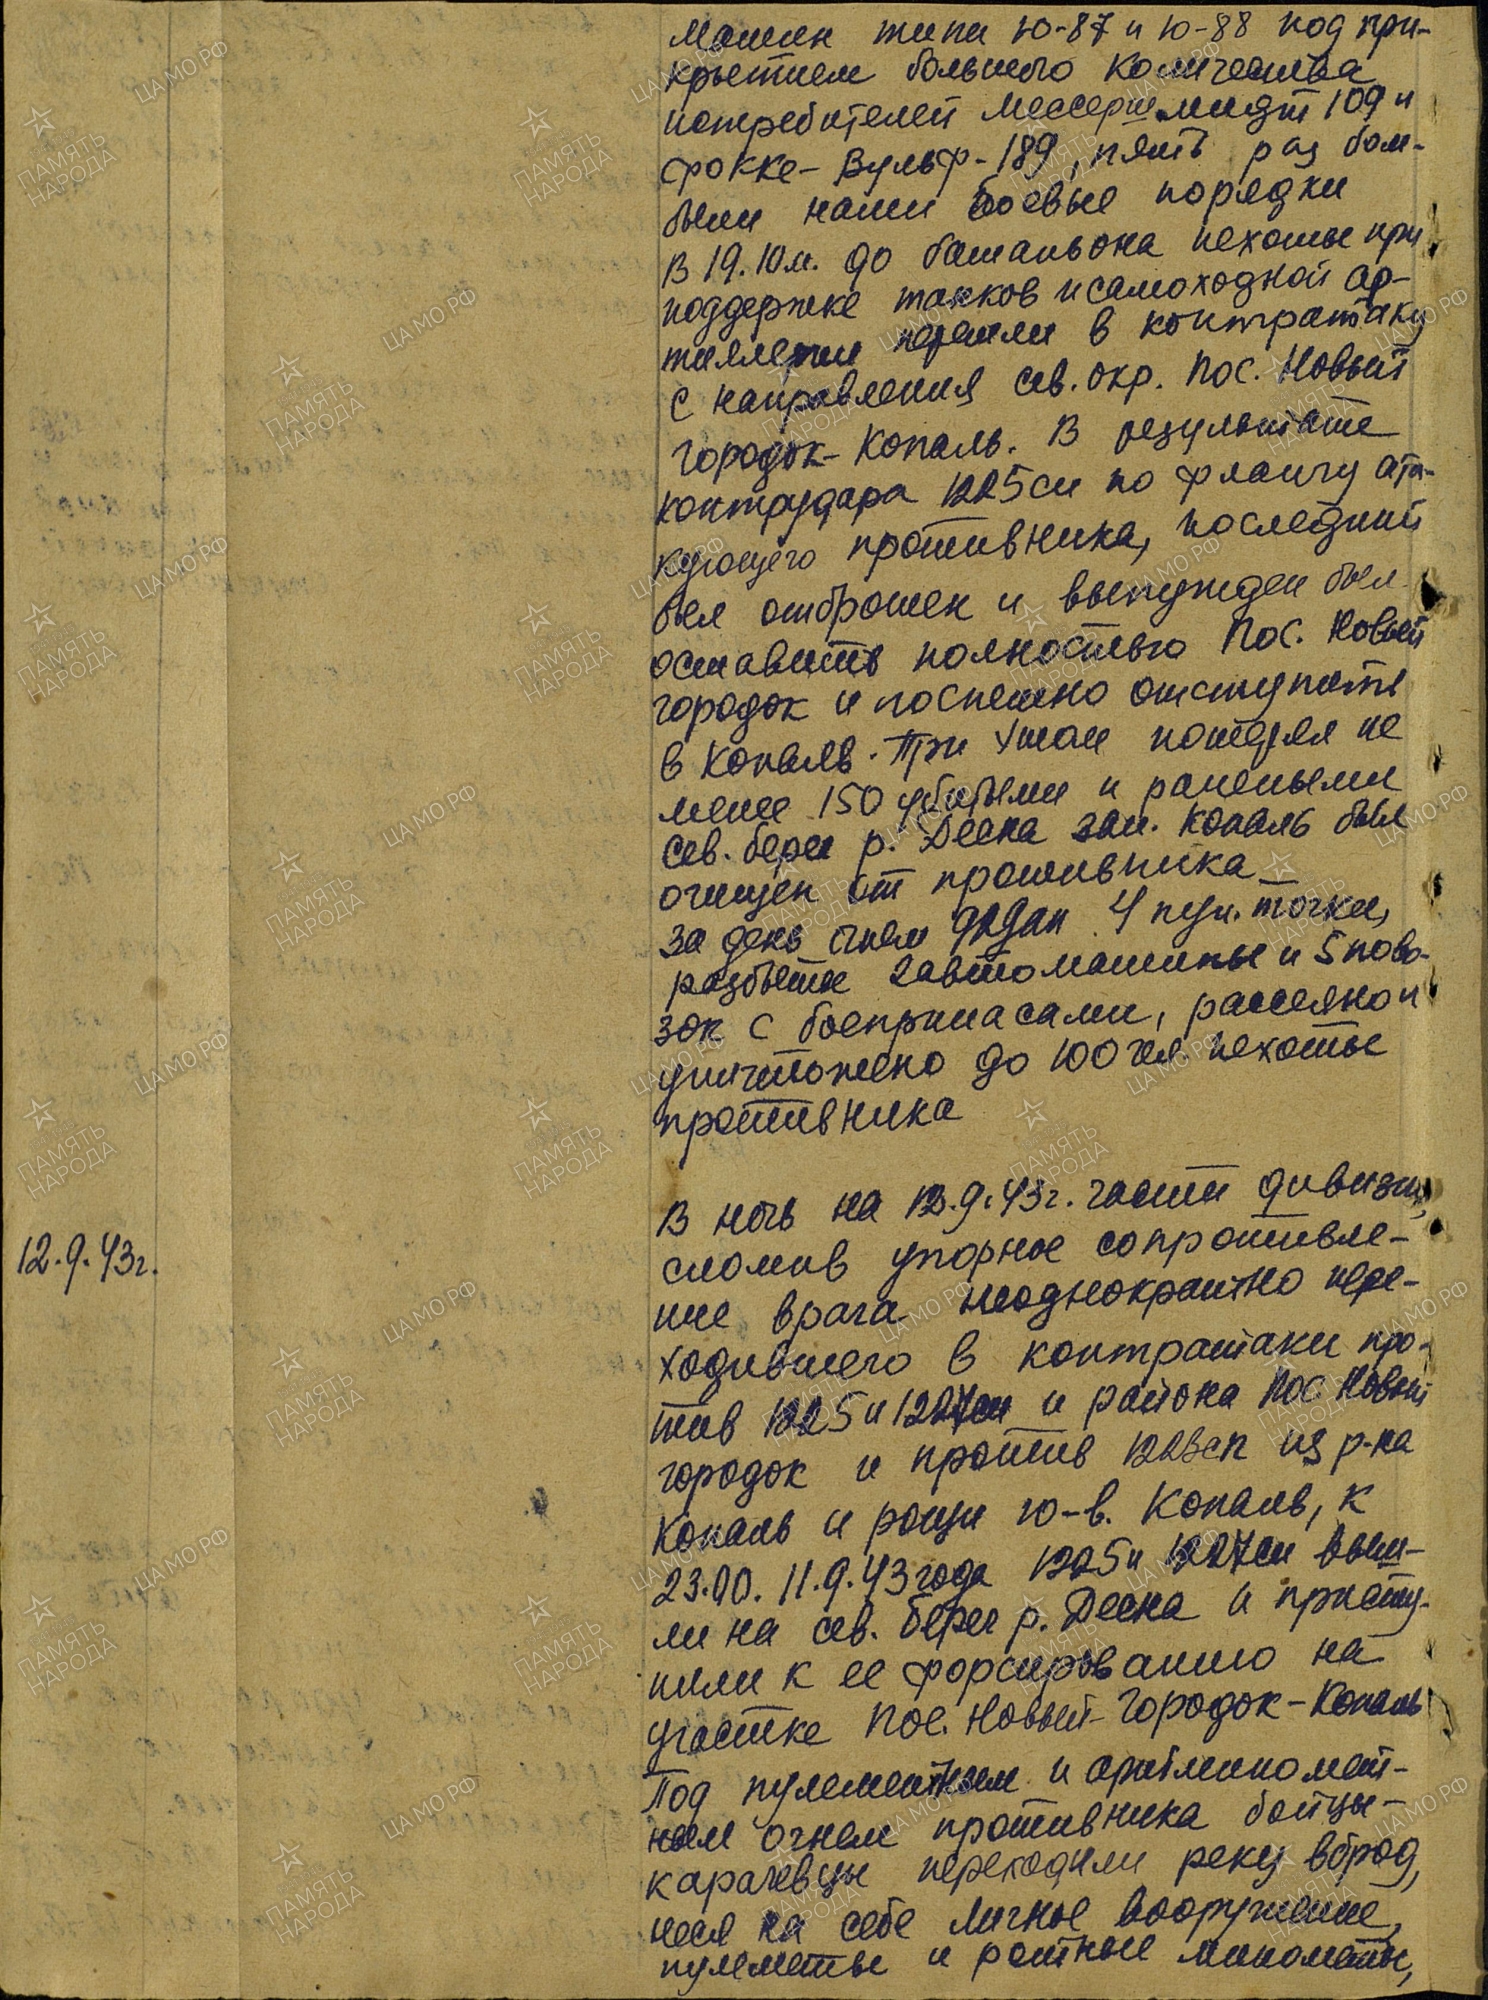 машин типа Ю-87 и Ю-88 под при-
крытием большого количества
истребителей Мессершмидт 109 и
Фокке-Вульф-189, пять раз бом-
били наши боевые порядки
В 19.10м. до батальона пехоты при
поддержке танков и самоходной ар-
тиллерии перешли в контратаку
с направления сев. окр. Пос. Новый
городок-Копаль. В результате
контрудара 1225сп по флангу ата-
кующего противника, последний
был отброшен и вынужден был
оставить полностью Пос. Новый
городок и поспешно отступить
в Копаль. При этом потерял не
менее 150 убитыми и ранеными
сев. берег р. Десна зап. Копаль был
очищен от противника
За день огнем 4 пул. точки,
разбиты 2 автомашины и 5 пово-
зок с боеприпасами, рассеяно и
уничтожено до 100 чел. пехоты
противника
12.9.43г.
В ночь на 12.9.43г. части дивизии,
сломив упорное сопротивле-
ние врага неоднократно пере-
ходившего в контратаки про-
тив 1225 и 1227сп и района Пос Новый
городок и против 1223сп из р-на
Копаль и рощи ю-в. Копаль, к
23.00. 11.9.43 года 1225 и 1227сп выш-
ли на сев. берег р. Десна и присту-
пили к ее форсированию на
участке Пос. Новый-Городок-Копаль
Под пулеметным и артминомет-
ным огнем противника бойцы-
карачевцы переходили реку вброд,
неся на себе личное вооружение,
пулеметы и ротные минометы,